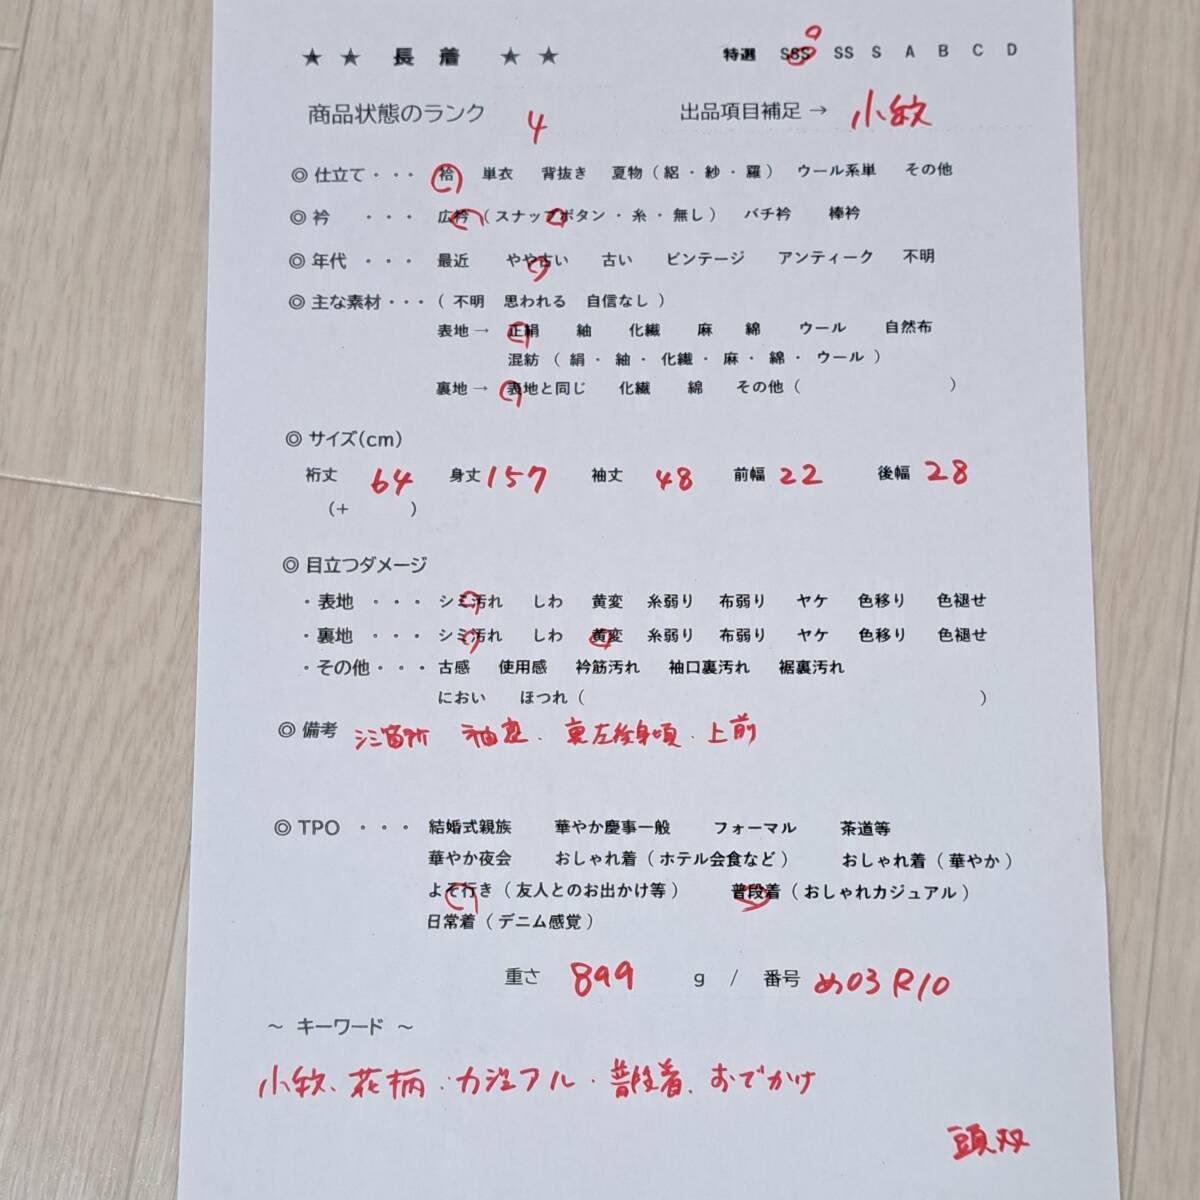 ★ ★ 長 着 ★ ★ 特選 SSS SS S A B C D
商品状態のランク 4 出品項目補足→ 小紋
◎ 仕立て・・・ 袷 単衣 背抜き 夏物(絽・紗・羅) ウール系単 その他
◎ 衿 ・・・ 広衿(スナップボタン・糸・無し) バチ衿 棒衿
◎ 年代 ・・・ 最近 やや古い 古い ビンテージ アンティーク 不明
◎ 主な素材・・・( 不明 思われる 自信なし )
表地→ 正絹 紬 化繊 麻 綿 ウール 自然布
混紡 ( 絹・紬・化繊・麻・綿・ウール )
裏地→ 表地と同じ 化繊 綿 その他( )
◎ サイズ(cm)
裄丈 64 身丈 157 袖丈 48 前幅 22 後幅 28
(+ )
◎ 目立つダメージ
・表地 ・・・ シミ汚れ しわ 黄変 糸弱り 布弱り ヤケ 色移り 色褪せ
・裏地 ・・・ シミ汚れ しわ 黄変 糸弱り 布弱り ヤケ 色移り 色褪せ
・その他・・・ 古感 使用感 衿筋汚れ 袖口裏汚れ 裾裏汚れ
におい ほつれ( )
◎ 備考 シミ箇所 袖裏・裏左後身頃・上前
◎ TPO ・・・ 結婚式親族 華やか慶事一般 フォーマル 茶道等
華やか夜会 おしゃれ着(ホテル会食など) おしゃれ着(華やか)
よそ行き(友人とのお出かけ等) 普段着(おしゃれカジュアル)
日常着(デニム感覚)
重さ 899 g / 番号 め03R10
～ キーワード ～
小紋、花柄・カジュアル・普段着、おでかけ